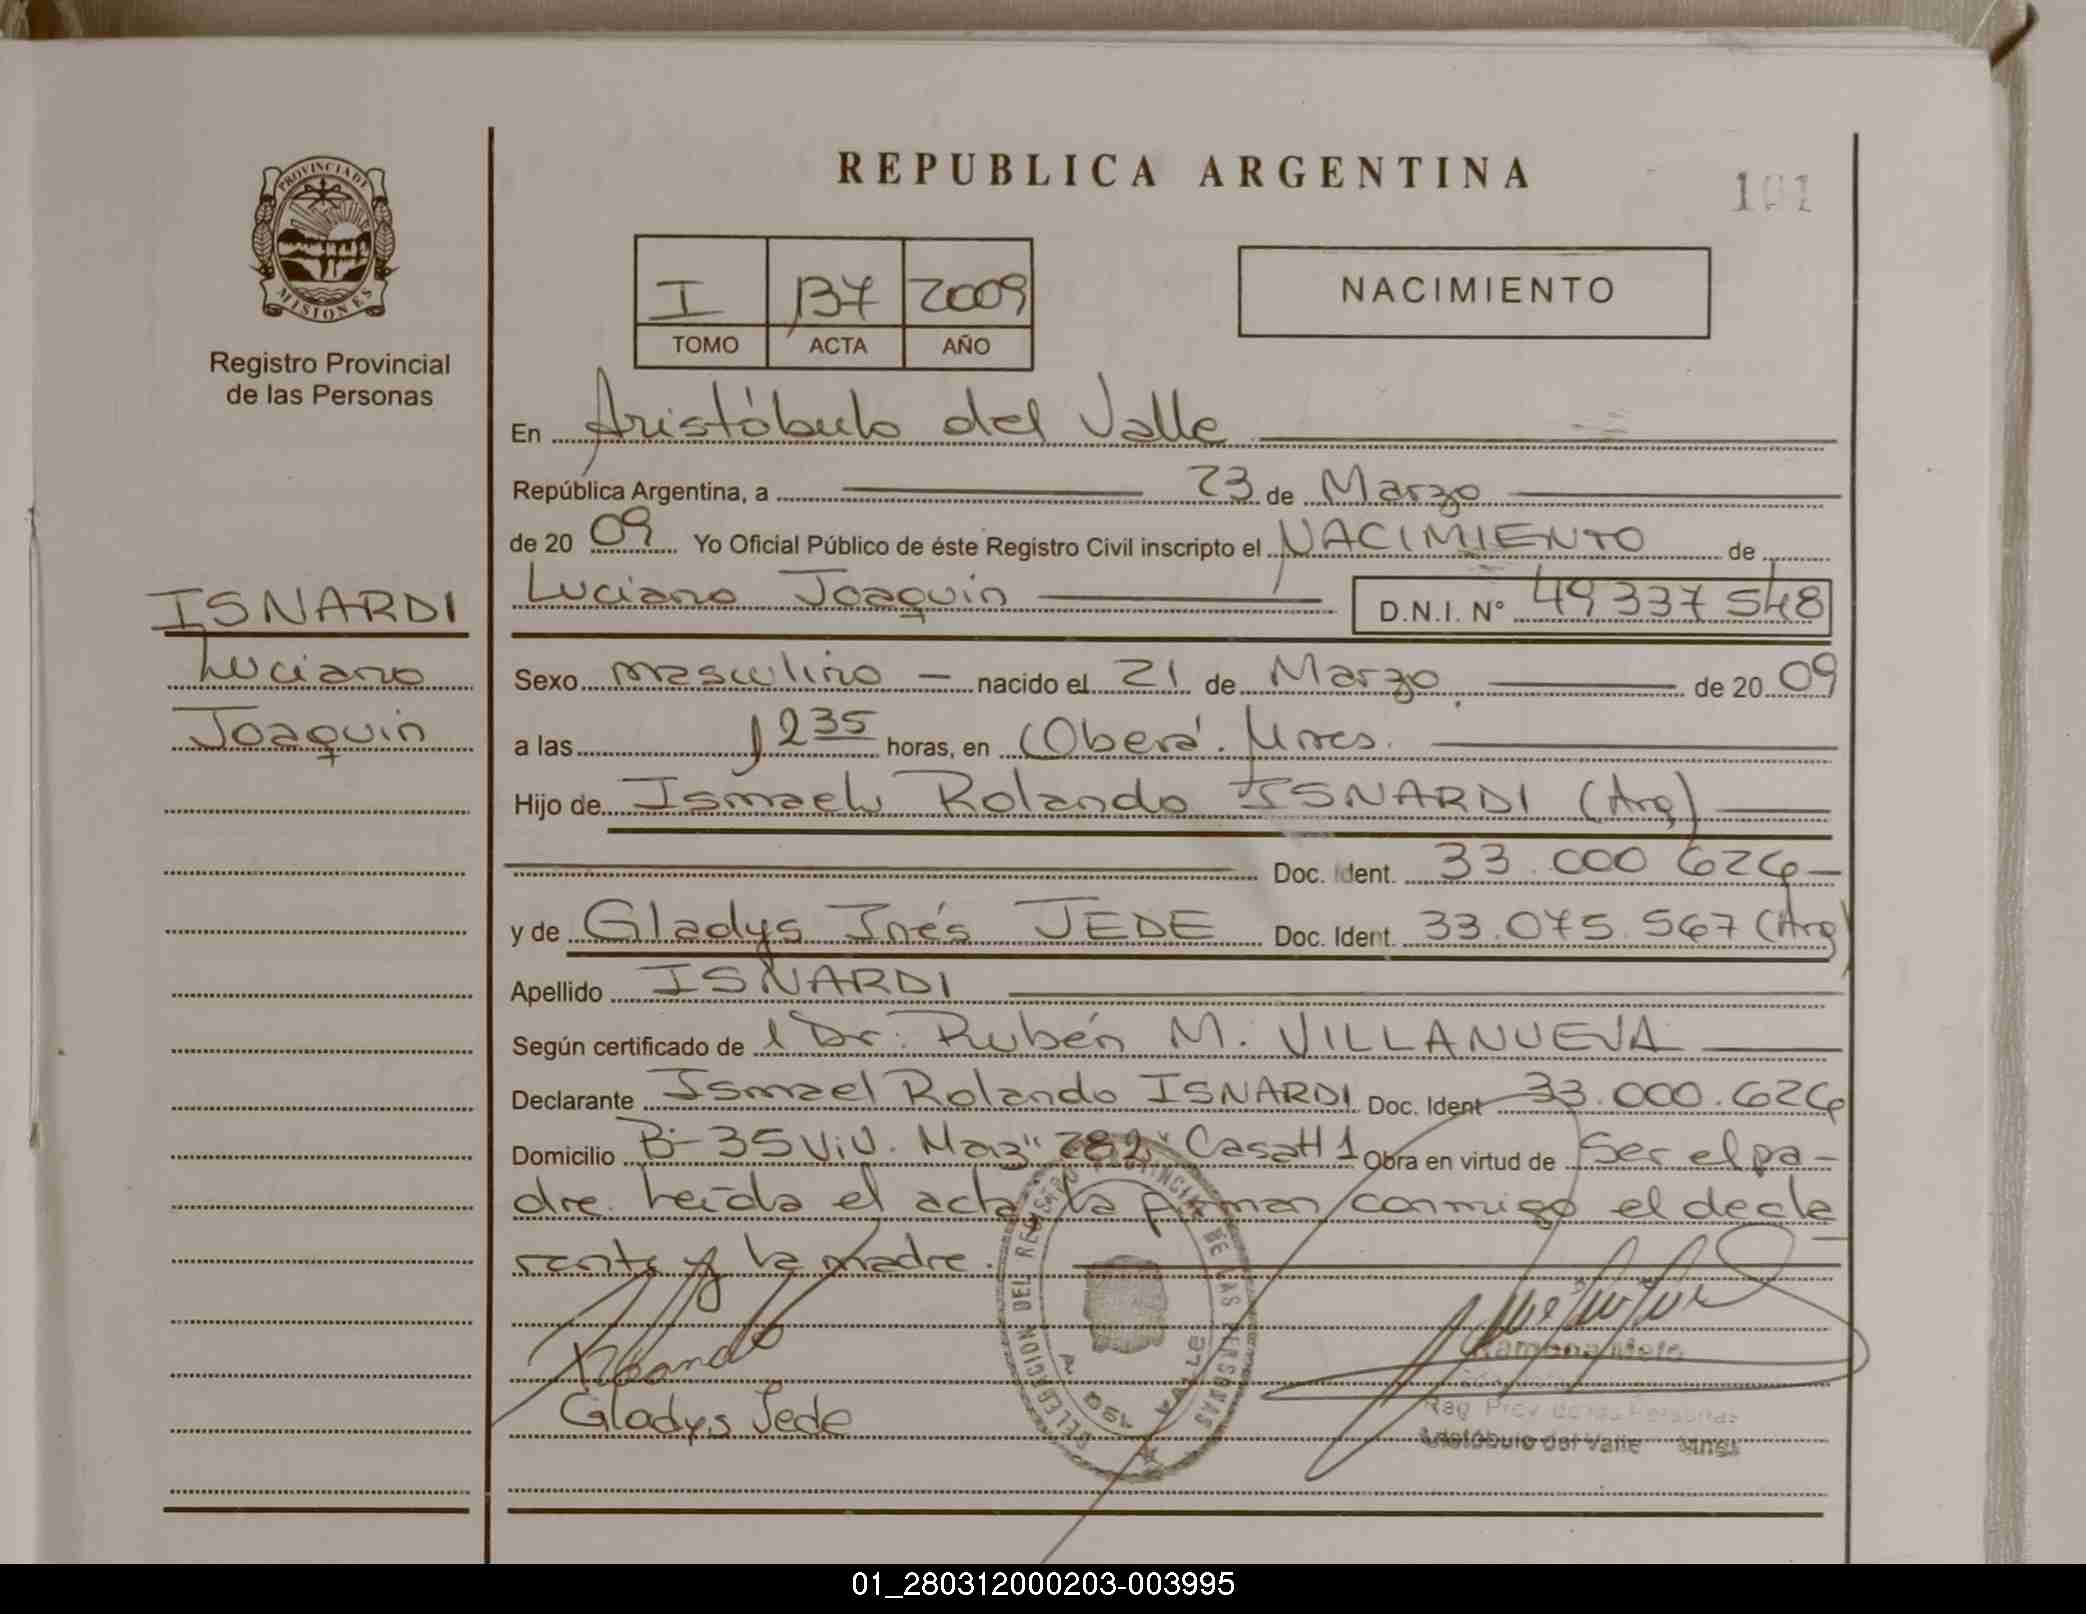 REPUBLICA ARGENTINA
101
PROVINCIA DE
MISIONES
Registro Provincial
de las Personas
I 137 2009
TOMO ACTA AÑO
NACIMIENTO
En Aristóbulo del Valle
República Argentina, a 23 de Marzo
de 20 09 Yo Oficial Público de éste Registro Civil inscripto el NACIMIENTO de
Luciano Joaquin D.N.I. Nº 49337548
ISNARDI
Luciano
Joaquin
Sexo masculino nacido el 21 de Marzo de 20 09
a las 12 35 horas, en Oberá. Mnes.
Hijo de Ismael Rolando ISNARDI (Arg)
Doc. Ident. 33.000 624
y de Gladys Inés JEDE Doc. Ident. 33.075.567 (Arg)
Apellido ISNARDI
Según certificado de l Dr. Rubén M. VILLANUEVA
Declarante Ismael Rolando ISNARDI Doc. Ident 33.000.624
Domicilio Bº 35 Viv. Mz "282" Casa # 1 Obra en virtud de Ser el pa-
dre. Leída el acta, la firman conmigo el decla
rante y la madre.
DELEGACION DEL REGISTRO PROVINCIAL DE LAS PERSONAS
A DEL VALLE
Gladys Jede
Ramona Melo
Reg Prov de las Personas
Aristóbulo del Valle Mnes
01_280312000203-003995